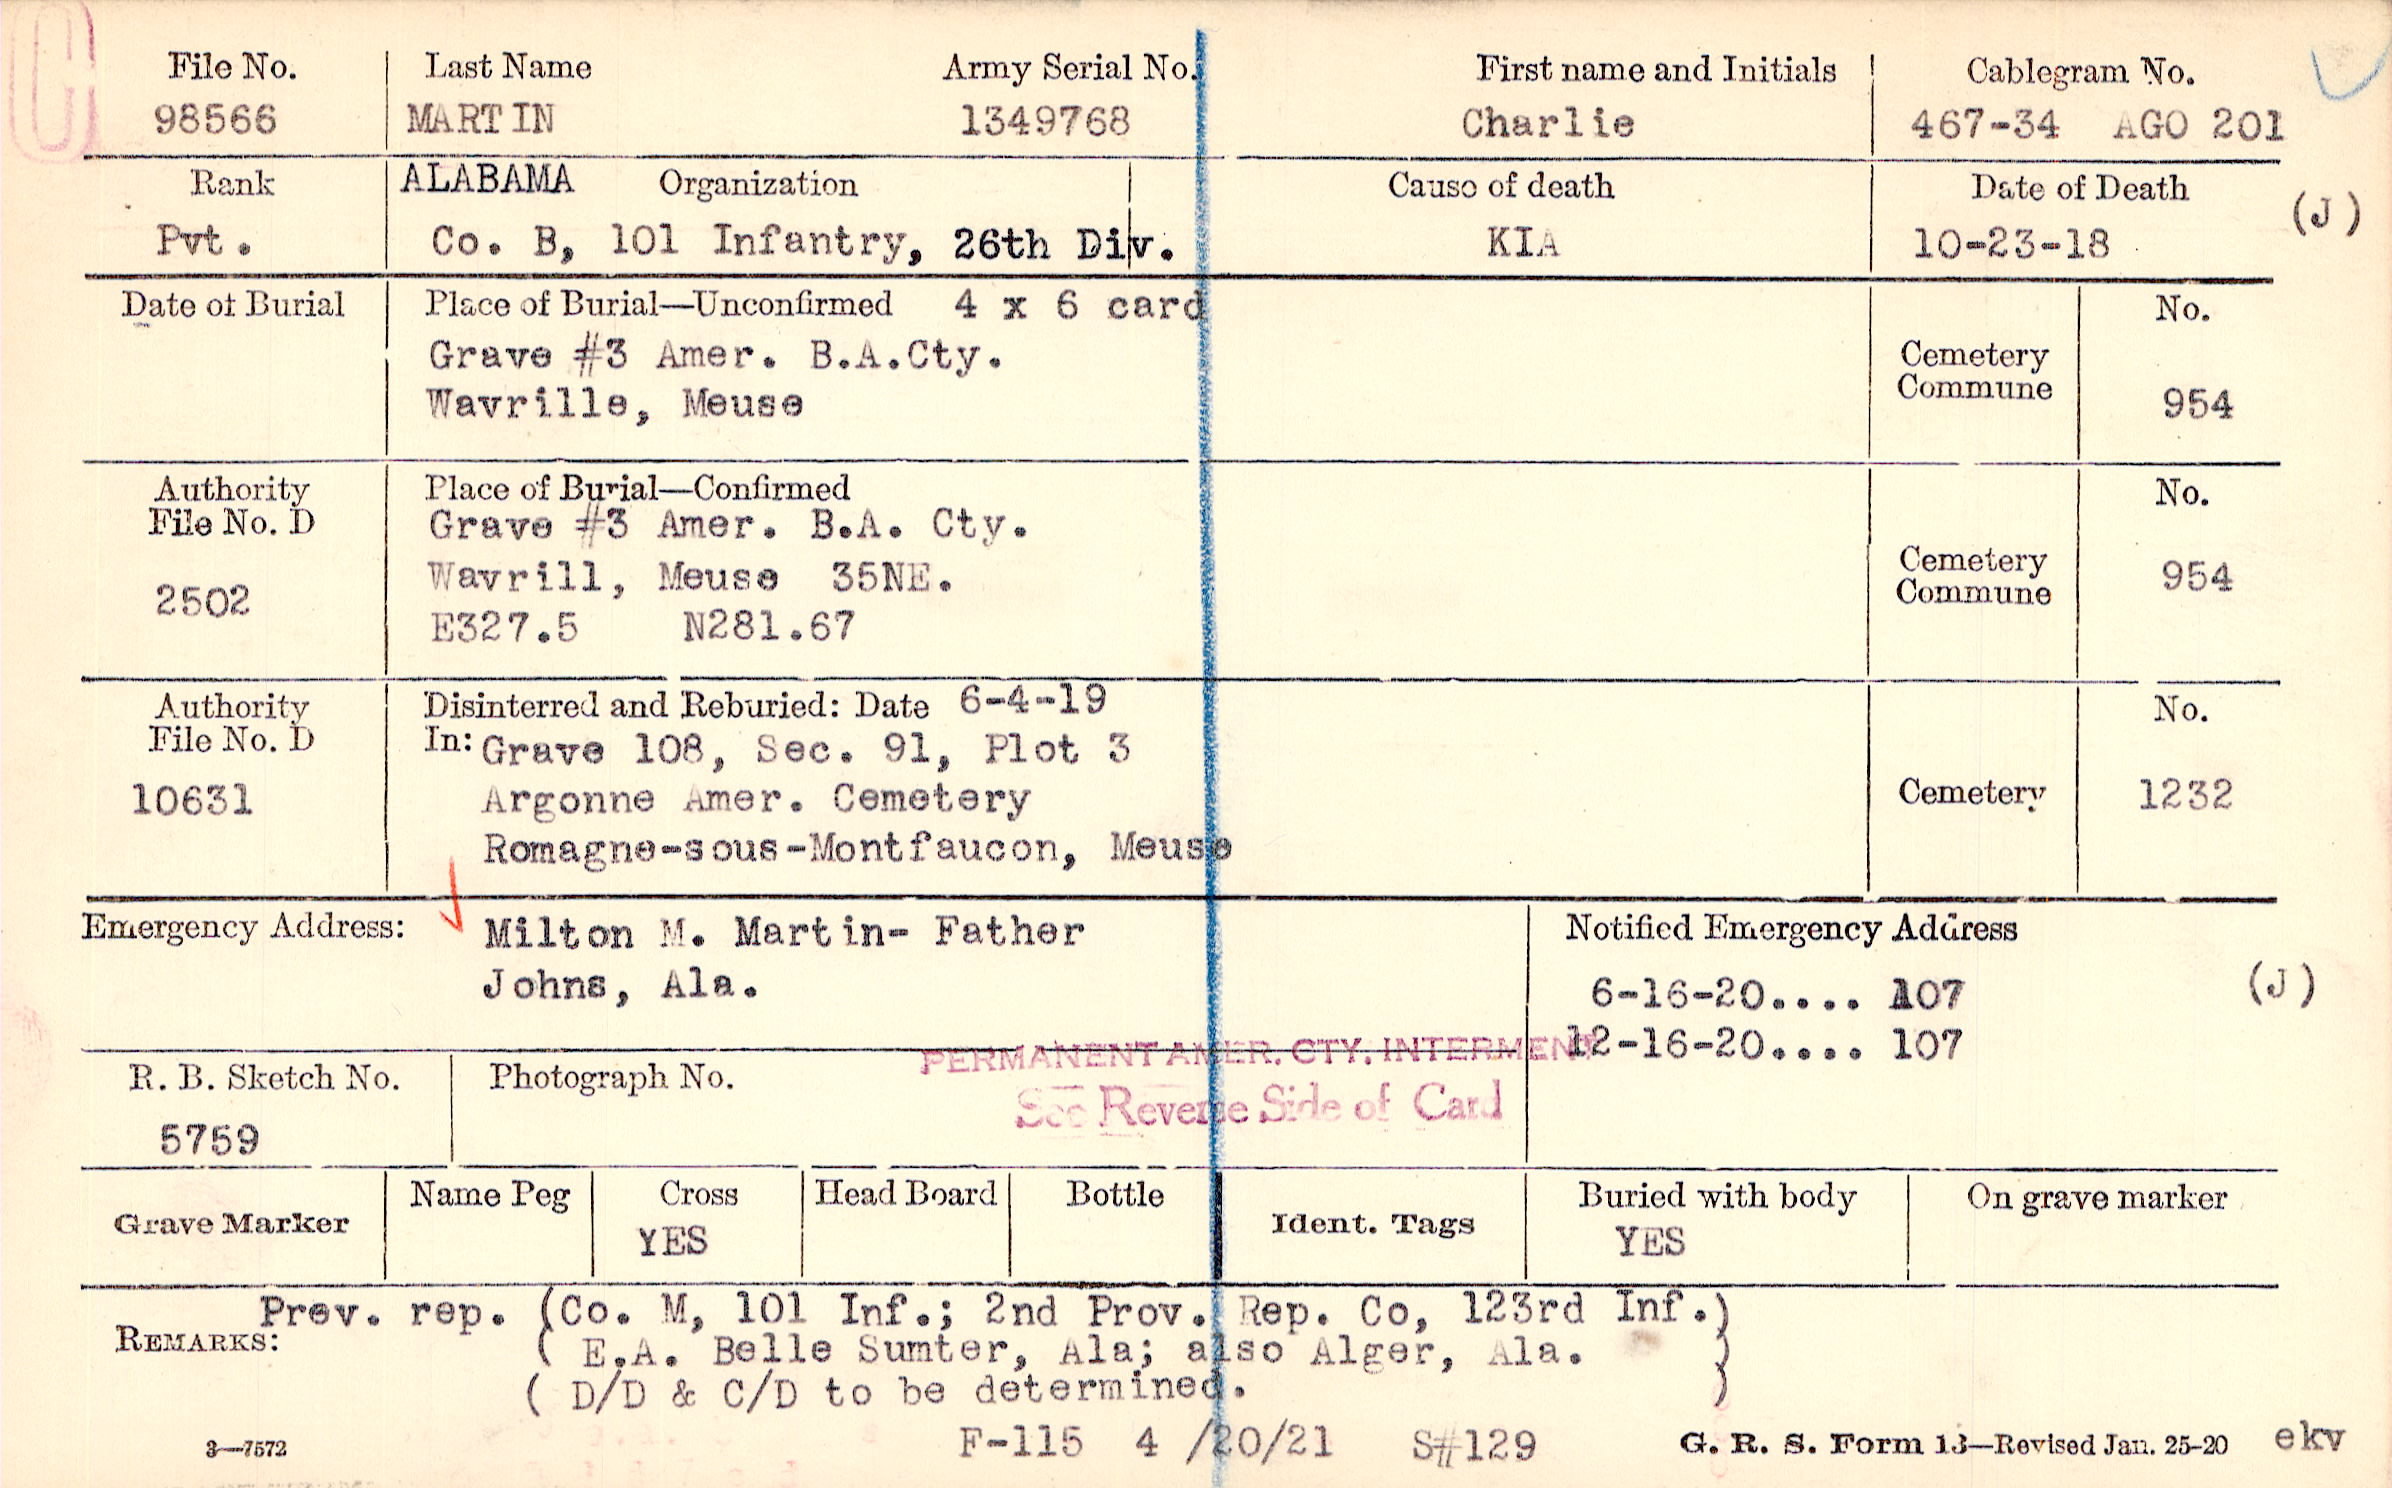 C
File No. Last Name Army Serial No. First name and Initials Cablegram No.
98566 MARTIN 1349768 Charlie 467-34 AGO 201
Rank ALABAMA Organization Cause of death Date of Death (J)
Pvt. Co. B, 101 Infantry, 26th Div. KIA 10-23-18
Date of Burial Place of Burial—Unconfirmed 4 x 6 card No.
Grave #3 Amer. B.A.Cty. Cemetery
Wavrille, Meuse Commune 954
Authority Place of Burial—Confirmed No.
File No. D Grave #3 Amer. B.A. Cty.
Wavrill, Meuse 35NE. Cemetery 954
2502 E327.5 N281.67 Commune
Authority Disinterred and Reburied: Date 6-4-19 No.
File No. D In: Grave 108, Sec. 91, Plot 3
10631 Argonne Amer. Cemetery Cemetery 1232
Romagne-sous-Montfaucon, Meuse
Emergency Address: Milton M. Martin- Father Notified Emergency Address
Johns, Ala. 6-16-20.... 107 (J)
PERMANENT AMER. CTY. INTERMENT 12-16-20.... 107
R. B. Sketch No. Photograph No. See Reverse Side of Card
5759
Grave Marker Name Peg Cross Head Board Bottle Ident. Tags Buried with body On grave marker
YES YES
Prev. rep. (Co. M, 101 Inf.; 2nd Prov. Rep. Co, 123rd Inf.)
REMARKS: ( E.A. Belle Sumter, Ala; also Alger, Ala. )
( D/D & C/D to be determined. )
F-115 4 /20/21 S#129
3—7572 G. R. S. Form 13—Revised Jan. 25-20 ekv